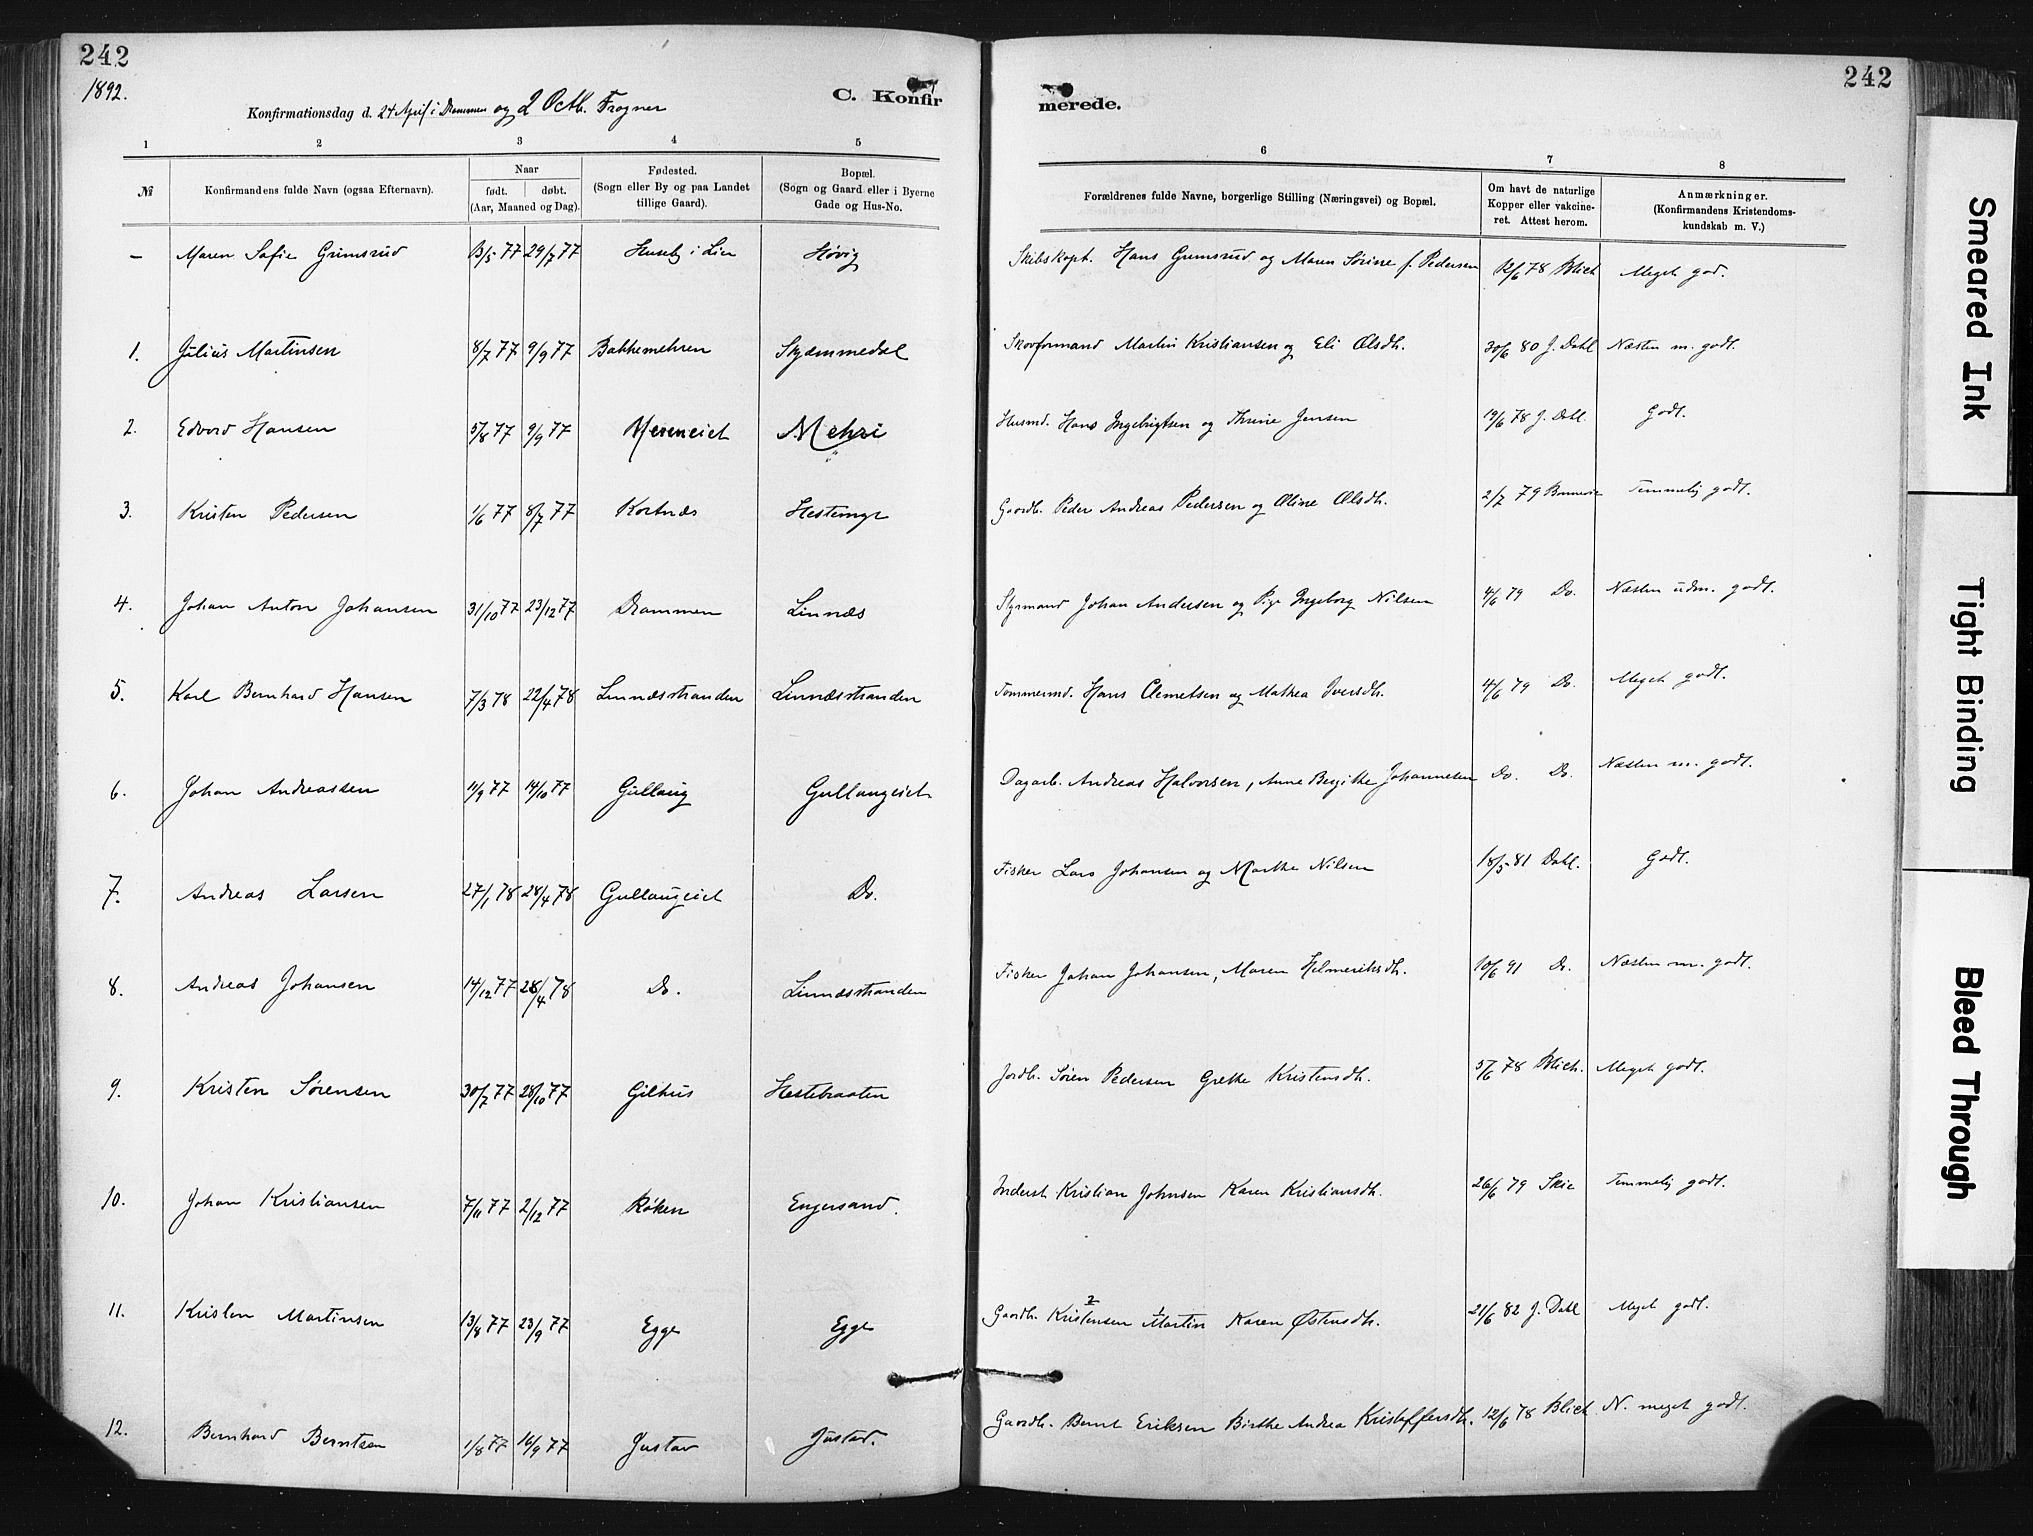 242
242
1892.
Konfirmationsdag d. 24 April i Drammen og 2 Octb. Frogner
C. Konfirmerede.
1 2 3 4 5 6 7 8
№ Konfirmandens fulde Navn (ogsaa Efternavn). Naar født. døbt. (Aar, Maaned og Dag). Fødested. (Sogn eller By og paa Landet tillige Gaard). Bopæl. (Sogn og Gaard eller i Byerne Gade og Hus-No. Forældrenes fulde Navne, borgerlige Stilling (Næringsvei) og Bopæl. Om havt de naturlige Kopper eller vakcineret. Attest herom. Anmærkninger. (Konfirmandens Kristendomskundskab m. V.)
– Maren Sofie Grimsrud 13/5 77 29/7 77 Huseby i Lier Høvig Skibskapt. Hans Grimsrud og Maren Sørine f. Pedersen 12/6 78 Blich Meget god.
1. Julius Martinsen 8/7 77 9/9 77 Bakkemehren Skjæmmedal Skovformand Martin Kristiansen og Eli Olsdh. 30/6 80 J. Dahl Næsten m. godt.
2. Edvard Hansen 5/8 77 9/9 77 Mereneiet Husmd. Hans Ingebrigtsen og Thrine Jensen 19/6 78 J. Dahl. Godt.
3. Kristen Pedersen 1/6 77 8/7 77 Kortnæs Hestemyr Gaardb. Peder Andreas Pedersen og Oline Olsdh. 2/7 79 Bonnevie Temmelig godt.
4. Johan Anton Johansen 31/10 77 23/12 77 Drammen Linnæs Styrmand Johan Andersen og Pige Ingeborg Nilsen 4/6 79 Do. Næsten udm. godt.
5. Karl Bernhard Hansen 7/3 78 22/4 78 Linnæsstranden Linnæsstranden Tømmermd. Hans Clemetsen og Mathea Iversdh. 4/6 79 Do. Meget godt.
6. Johan Andreassen 11/9 77 14/10 77 Gullaug Gullaugeiet Dagarb. Andreas Halvorsen, Anne Birgitte Johannesen Do. Do. Næsten m. godt.
7. Andreas Larsen 27/1 78 28/4 78 Gullaugeiet Do. Fisker Lars Johansen og Marthe Nilsen 18/5 81 Dahl. Godt.
8. Andreas Johansen 14/12 77 28/4 78 Do. Linnæsstranden Fisker Johan Johansen, Maren Helmeriksdh. 10/6 91 Do. Næsten m. godt.
9. Kristen Sørensen 30/7 77 28/10 77 Gilhus Hestebraaten Jordb. Søren Pedersen Grethe Kristensdh. 5/6 78 Blich. Meget godt.
10. Johan Kristiansen 7/11 77 2/12 77 Røken Engersand. Inderst Kristian Johnsen Karen Kristiansdh. 26/6 79 Skie Temmelig godt.
11. Kristen Martinsen 13/8 77 23/9 77 Egge Egge Gaardb. 2 Kristensen 1 Martin Karen Østensdh. 21/6 82 J. Dahl Meget godt.
12. Bernhard Berntsen 1/8 77 16/9 77 Justad Justad. Gaardb. Bernt Eriksen Birthe Andrea Kristoffersdh. 12/6 78 Blich N. meget godt.
Smeared Ink
Tight Binding
Bleed Through